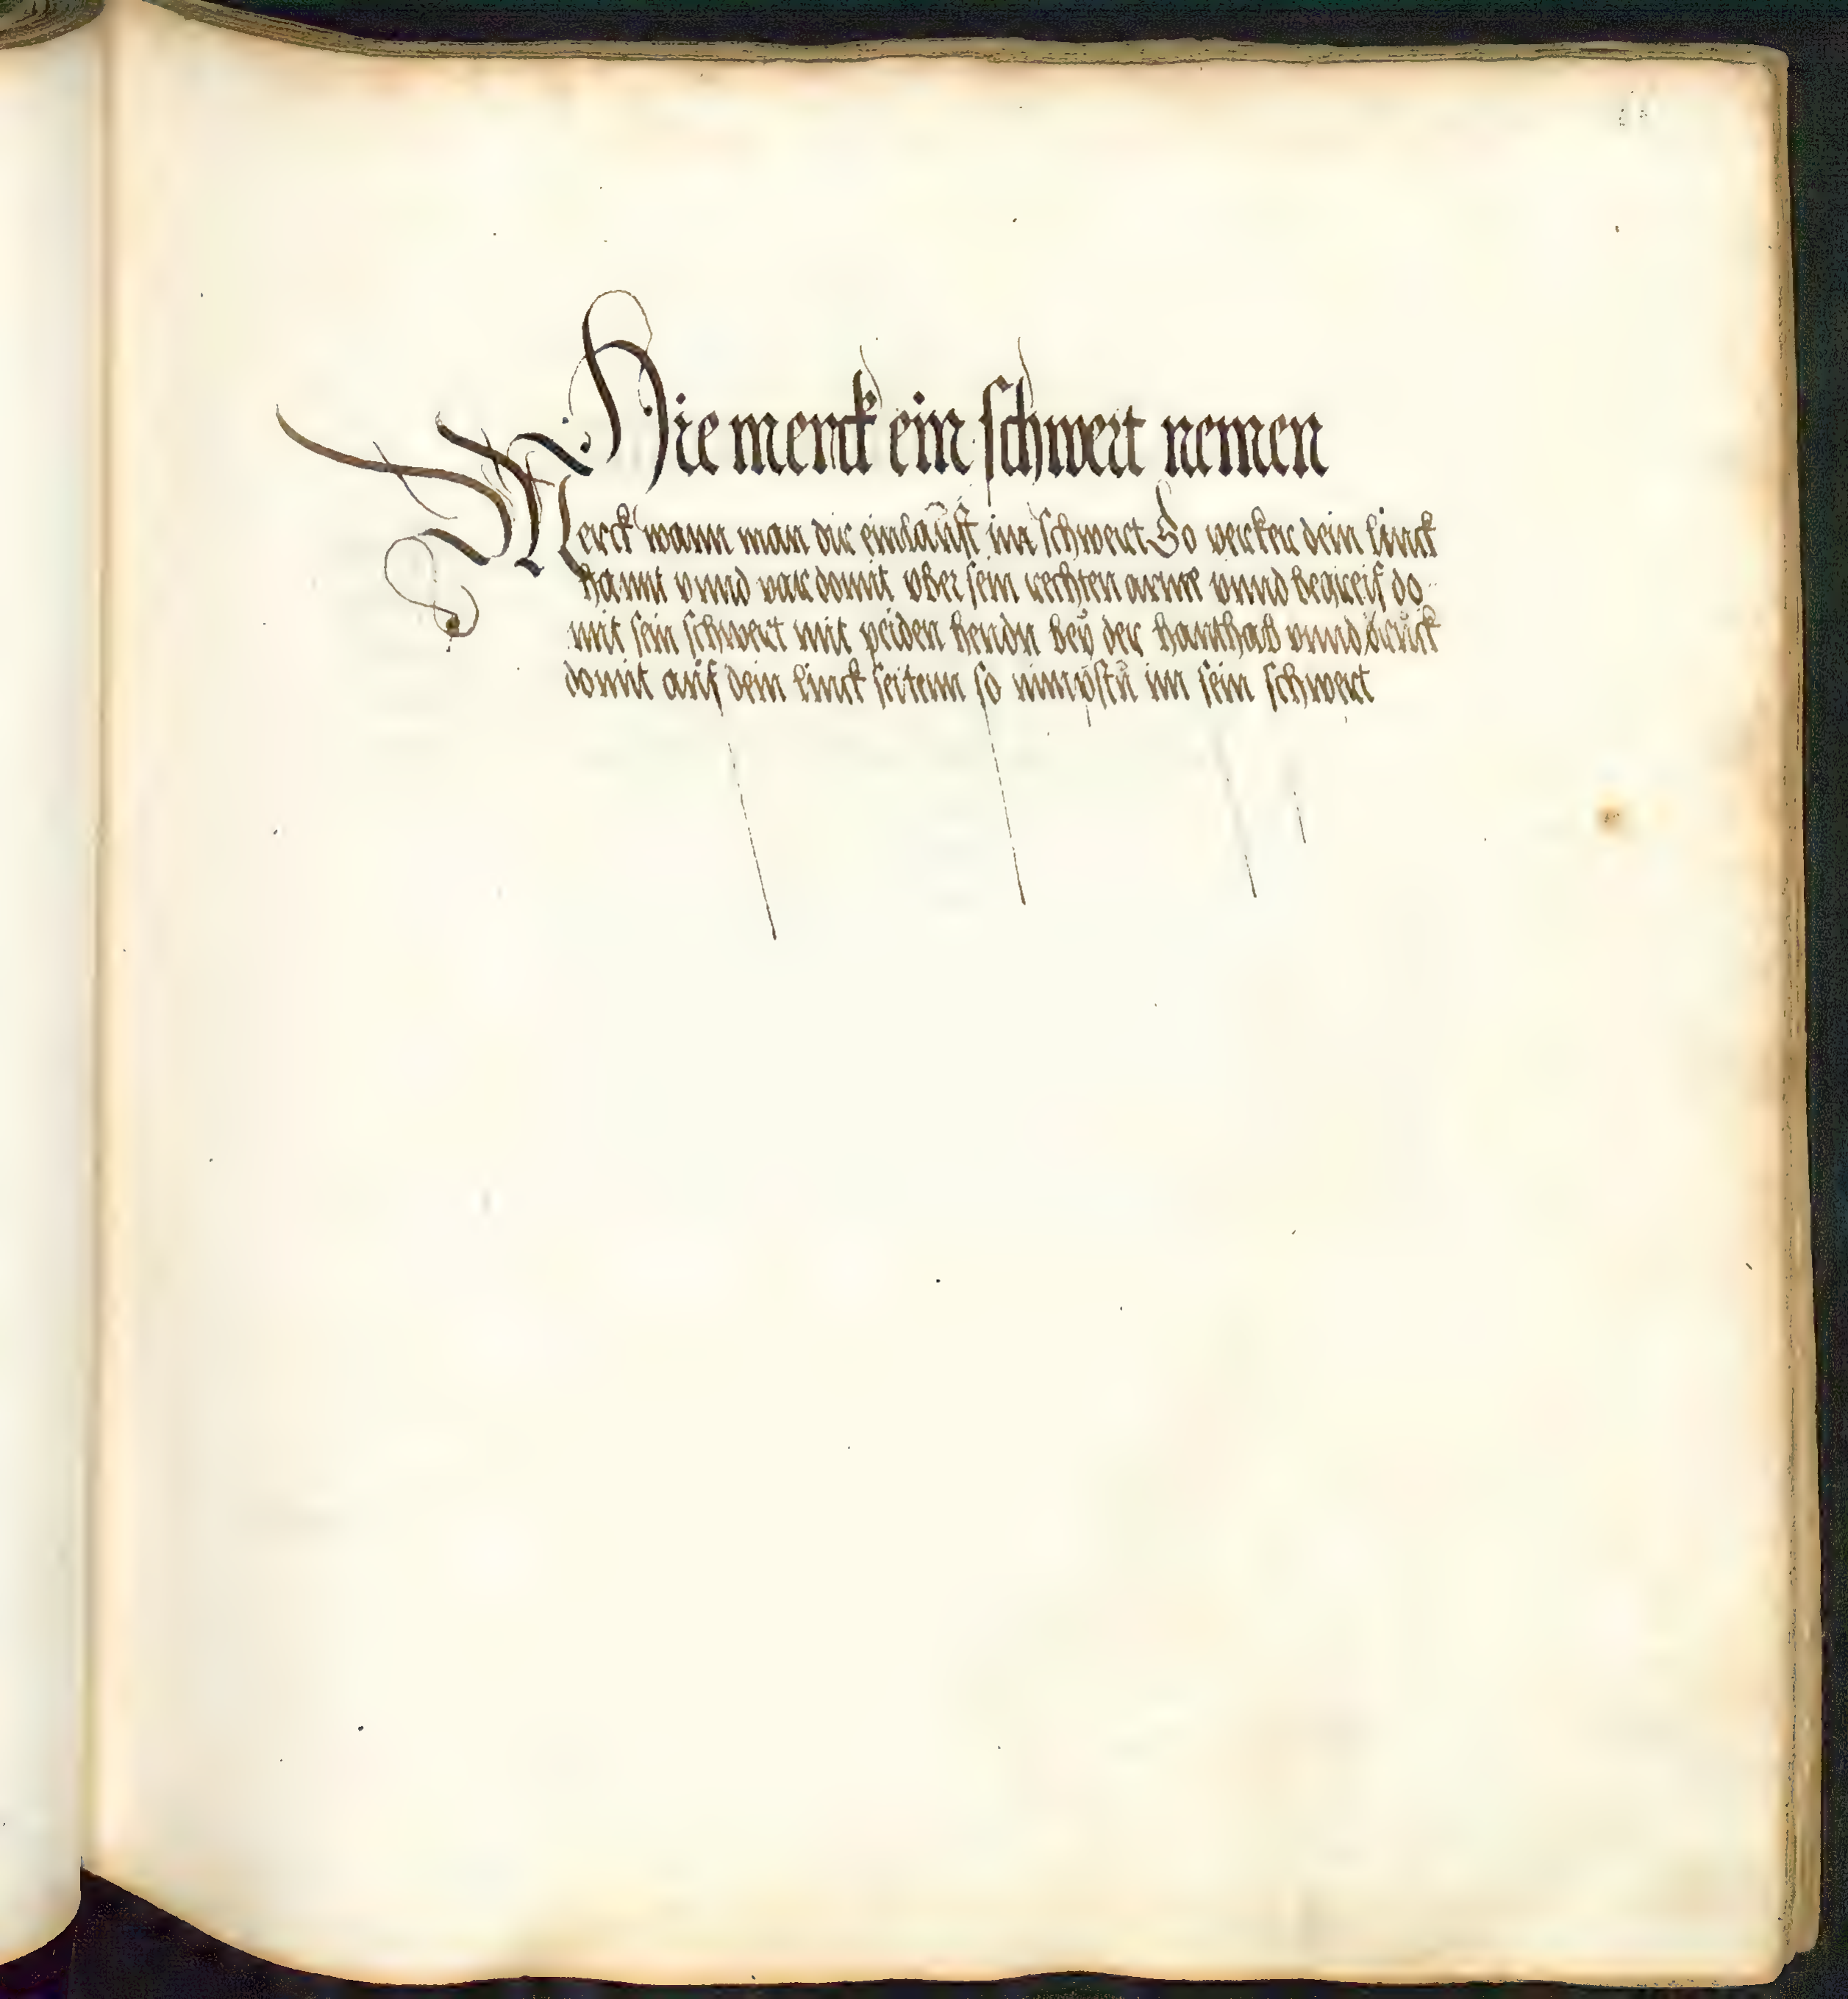 Hie merck ein schwert nemen
Merck wann man dir einlaufft im schwert So verker dein linck
hannt vnnd var domit vber sein rechten arme vnnd begreif do
mit sein schwert mit peiden hendn bey der hanthab vnnd druck
domit auf dein linck seitenn so nimpstu im sein schwert